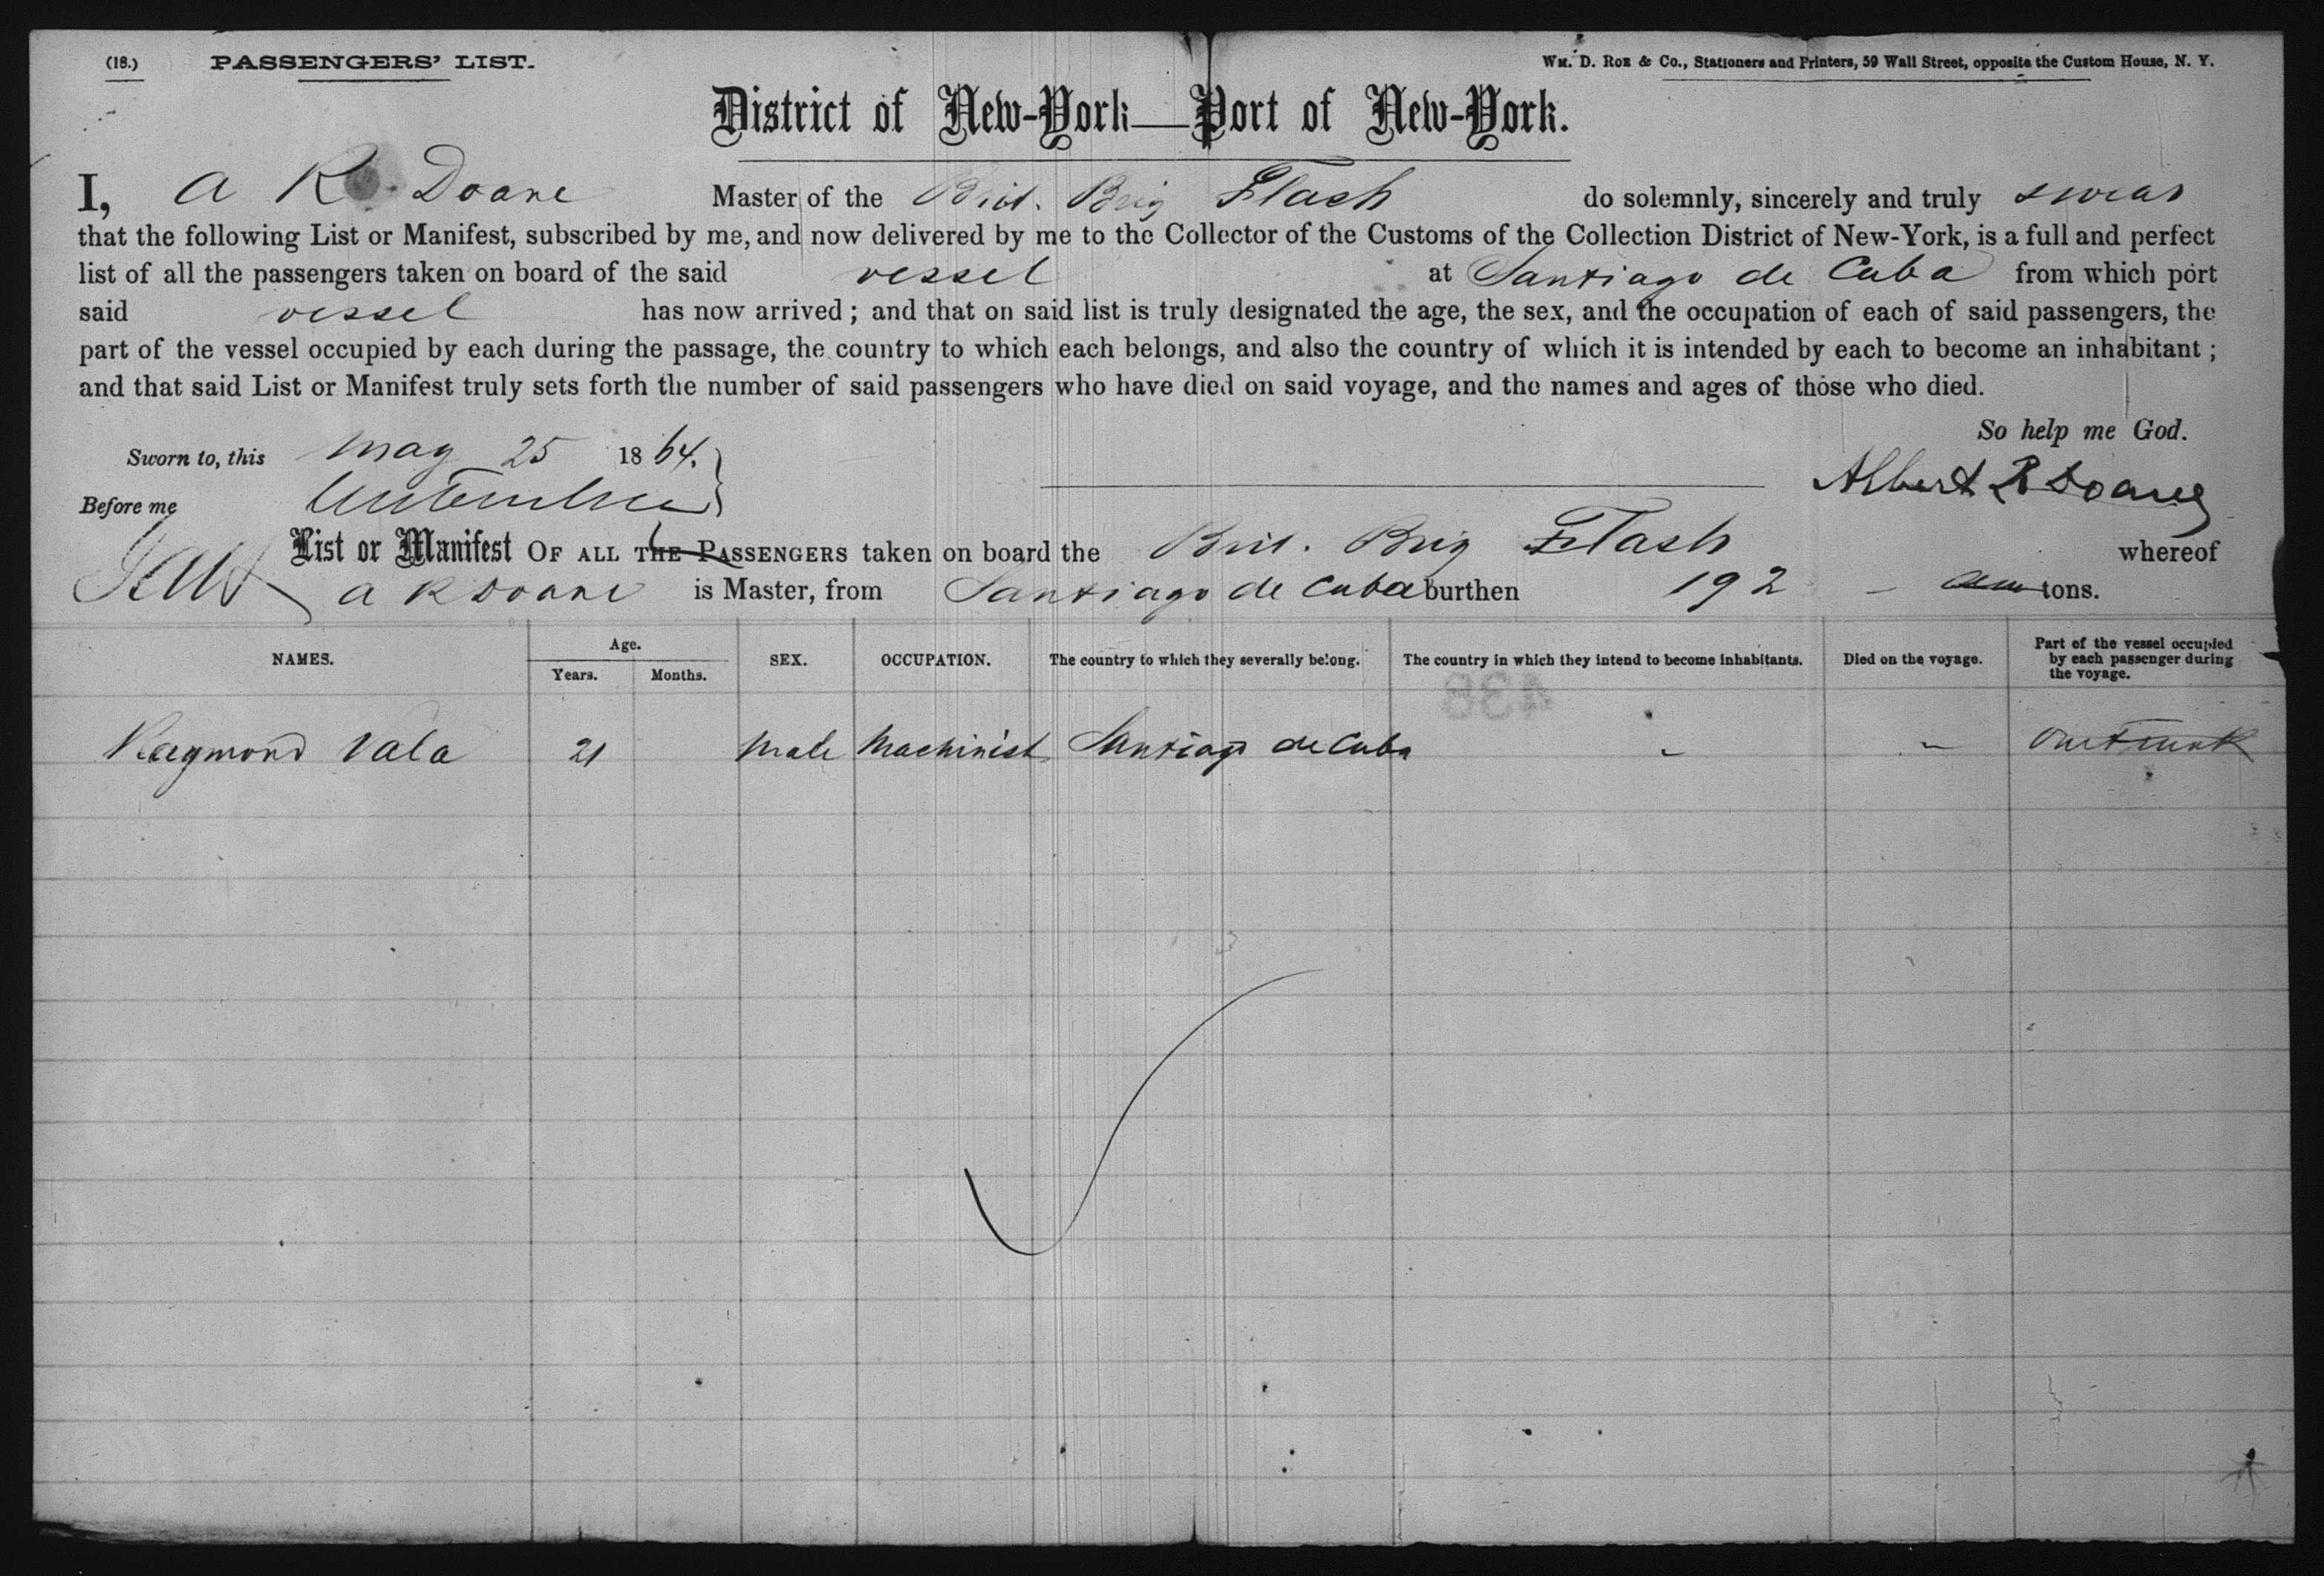 (18.) PASSENGERS' LIST. Wm. D. Roe & Co., Stationers and Printers, 59 Wall Street, opposite the Custom House, N. Y.
District of New-York—Port of New-York.
I, A R Doane Master of the Brit. Brig Flash do solemnly, sincerely and truly swear
that the following List or Manifest, subscribed by me, and now delivered by me to the Collector of the Customs of the Collection District of New-York, is a full and perfect
list of all the passengers taken on board of the said vessel at Santiago de Cuba from which port
said vessel has now arrived; and that on said list is truly designated the age, the sex, and the occupation of each of said passengers, the
part of the vessel occupied by each during the passage, the country to which each belongs, and also the country of which it is intended by each to become an inhabitant;
and that said List or Manifest truly sets forth the number of said passengers who have died on said voyage, and the names and ages of those who died.
So help me God.
Sworn to, this May 25 1864.
Albert R Doane
Before me
List or Manifest OF ALL THE PASSENGERS taken on board the Brit. Brig Flash whereof
A R Doane is Master, from Santiago de Cuba burthen 192 tons.
NAMES. Age. Years. Months. SEX. OCCUPATION. The country to which they severally belong. The country in which they intend to become inhabitants. Died on the voyage. Part of the vessel occupied by each passenger during the voyage.
Raymond Vala 21 Male Machinist Santiago de Cuba - - One Trunk